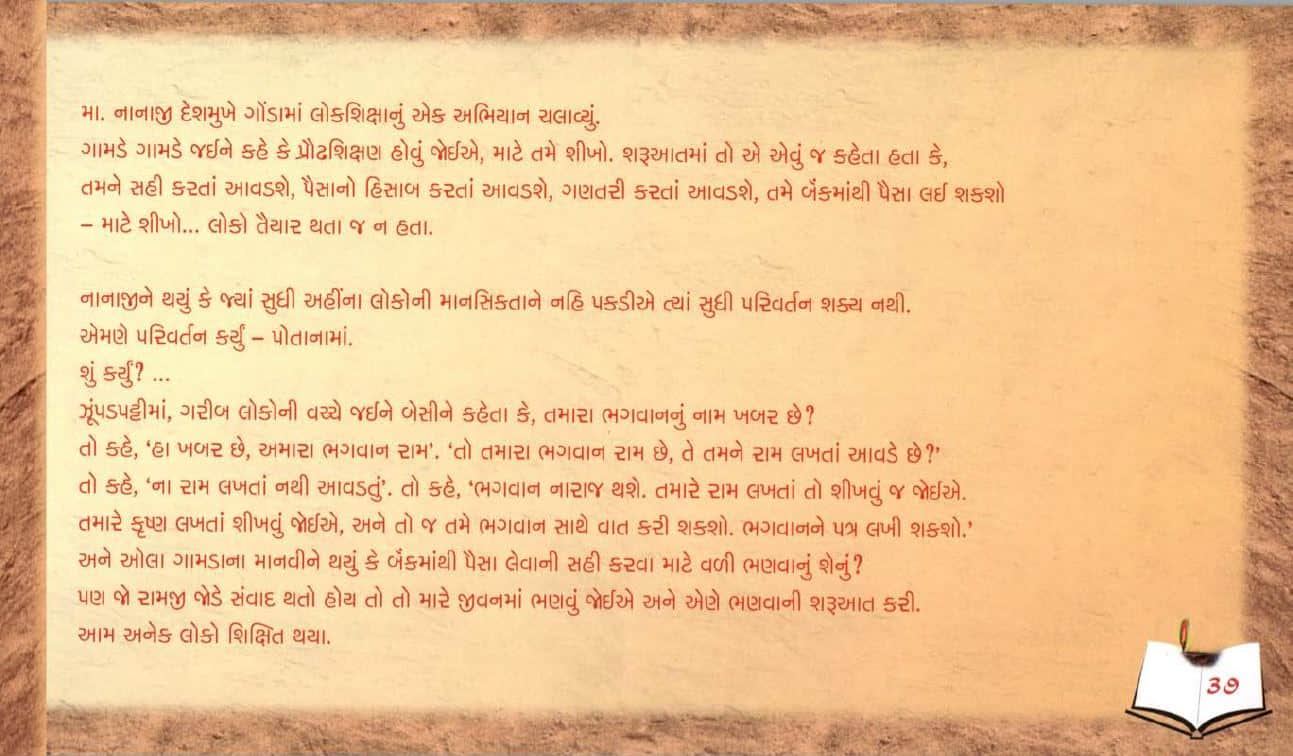 મા. નાનાજી દેશમુખે ગોંડામાં લોકશિક્ષાનું એક અભિયાન ચલાવ્યું.
ગામડે ગામડે જઈને કહે કે પ્રૌઢશિક્ષણ હોવું જોઈએ, માટે તમે શીખો. શરૂઆતમાં તો એ એવું જ કહેતા હતા કે,
તમને સહી કરતાં આવડશે, પૈસાનો હિસાબ કરતાં આવડશે, ગણતરી કરતાં આવડશે, તમે બૅંકમાંથી પૈસા લઈ શકશો
– માટે શીખો... લોકો તૈયાર થતા જ ન હતા.
નાનાજીને થયું કે જ્યાં સુધી અહીંના લોકોની માનસિકતાને નહિ પકડીએ ત્યાં સુધી પરિવર્તન શક્ય નથી.
એમણે પરિવર્તન કર્યું – પોતાનામાં.
શું કર્યું? ...
ઝૂંપડપટ્ટીમાં, ગરીબ લોકોની વચ્ચે જઈને બેસીને કહેતા કે, તમારા ભગવાનનું નામ ખબર છે?
તો કહે, ‘હા ખબર છે, અમારા ભગવાન રામ’. ‘તો તમારા ભગવાન રામ છે, તે તમને રામ લખતાં આવડે છે?’
તો કહે, ‘ના રામ લખતાં નથી આવડતું’. તો કહે, ‘ભગવાન નારાજ થશે. તમારે રામ લખતાં તો શીખવું જ જોઈએ.
તમારે કૃષ્ણ લખતાં શીખવું જોઈએ, અને તો જ તમે ભગવાન સાથે વાત કરી શકશો. ભગવાનને પત્ર લખી શકશો.’
અને ઓલા ગામડાના માનવીને થયું કે બૅંકમાંથી પૈસા લેવાની સહી કરવા માટે વળી ભણવાનું શેનું?
પણ જો રામજી જોડે સંવાદ થતો હોય તો તો મારે જીવનમાં ભણવું જોઈએ અને એણે ભણવાની શરૂઆત કરી.
આમ અનેક લોકો શિક્ષિત થયા.
૩૭